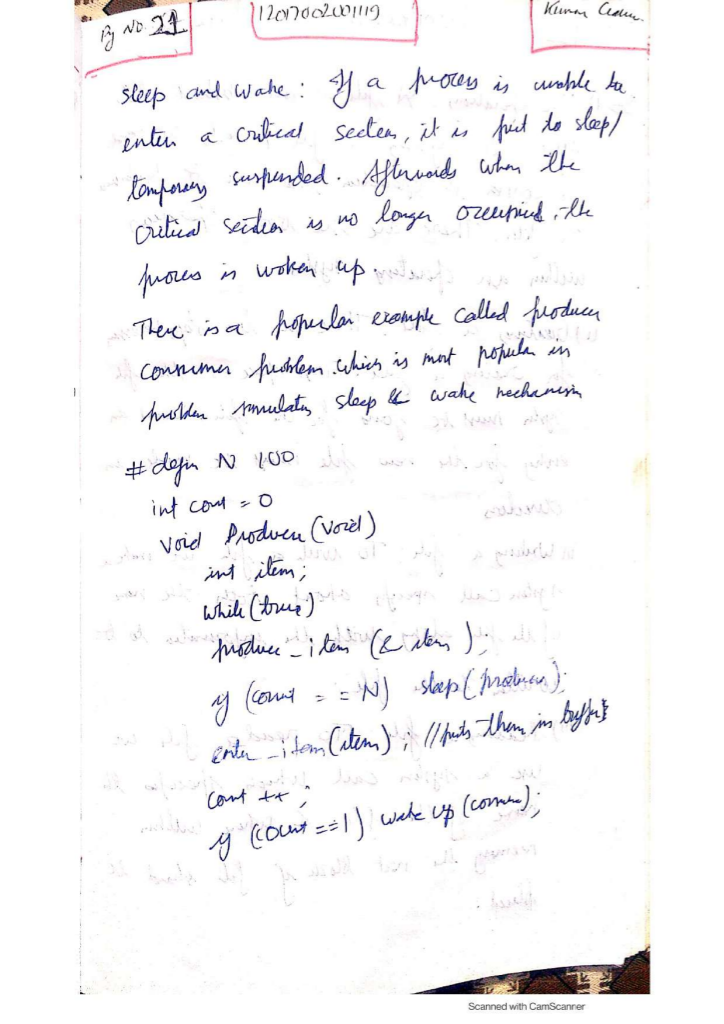 Pg No. 21
12017002001119
Kumar
sleep and wake: If a process is unable to
enter a critical section, it is put to sleep/
temporary suspended. Afterwards when the
critical section is no longer occupied, the
process is woken up.
There is a popular example called producer
consumer problem which is most popular in
problem simulates sleep & wake mechanism
# defin N 100
int cout = 0
void Producer (void)
int item;
while (true)
produce_item (& item);
if (count == N) sleep (producer);
enter_item (item); // puts them in buffer}
count ++;
if (count ==1) wake up (consu);
Scanned with CamScanner